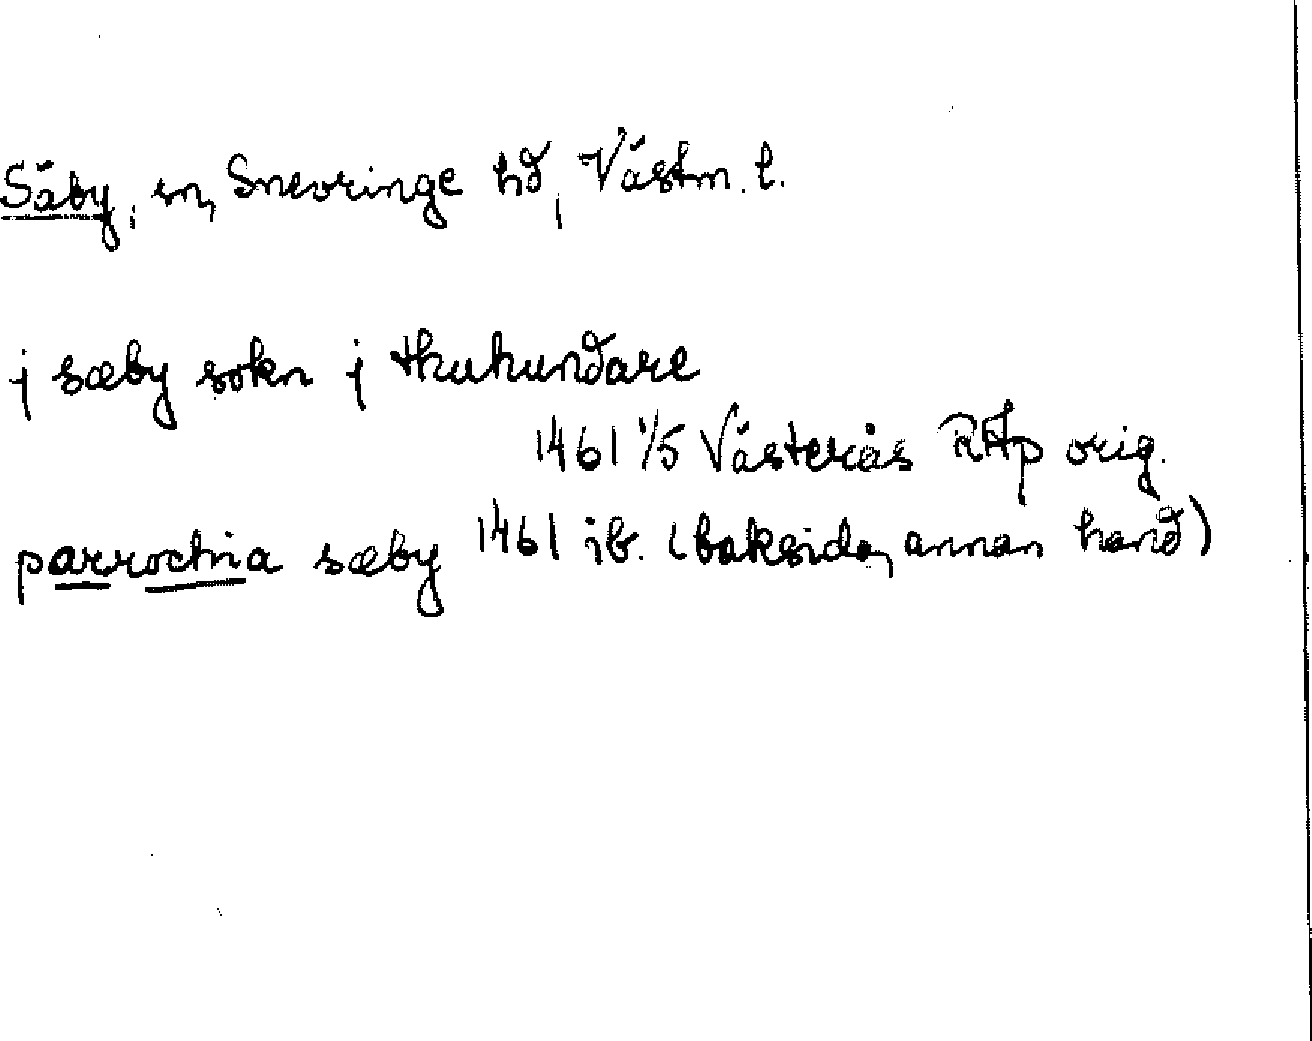 Säby, sn, Snevringe hd, Västm. l.
j sæby sokn j thuhundare
1461 1/5 Västerås RAp orig.
parrochia sæby 1461 ib. (baksida, annan hand)